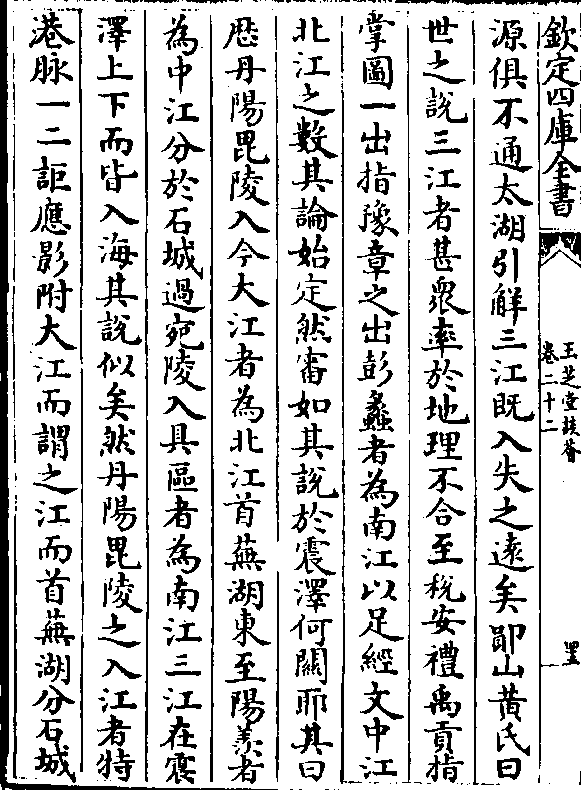 欽定四庫全書
玉芝堂談薈
卷二十二
源俱不通太湖引觧三江既入失之遠矣鄖山黄氏曰
世之說三江者甚衆率於地理不合至稅安禮禹貢指
掌圖一出指豫章之出彭蠡者為南江以足經文中江
北江之數其論始定然審如其說於震澤何關耶其曰
厯丹陽毘陵入今大江者為北江首蕪湖東至陽羨者
為中江分於石城過宛陵入具區者為南江三江在震
澤上下而皆入海其說似矣然丹陽毘陵之入江者特
港脉一二詎應影附大江而謂之江而首蕪湖分石城